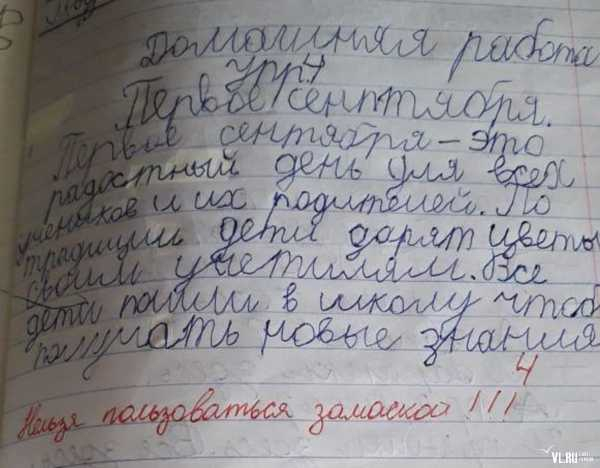 Домашняя работа
упр4
Первое сенптября.
Первое сентября – это
радостный день для всех
учеников и их родителей. По
традиции дети дарят цветы
своим учетилям. Все
дети пошли в школу чтоб
получать новые знания
4
Нельзя пользоваться замаской !!!
VL.RU